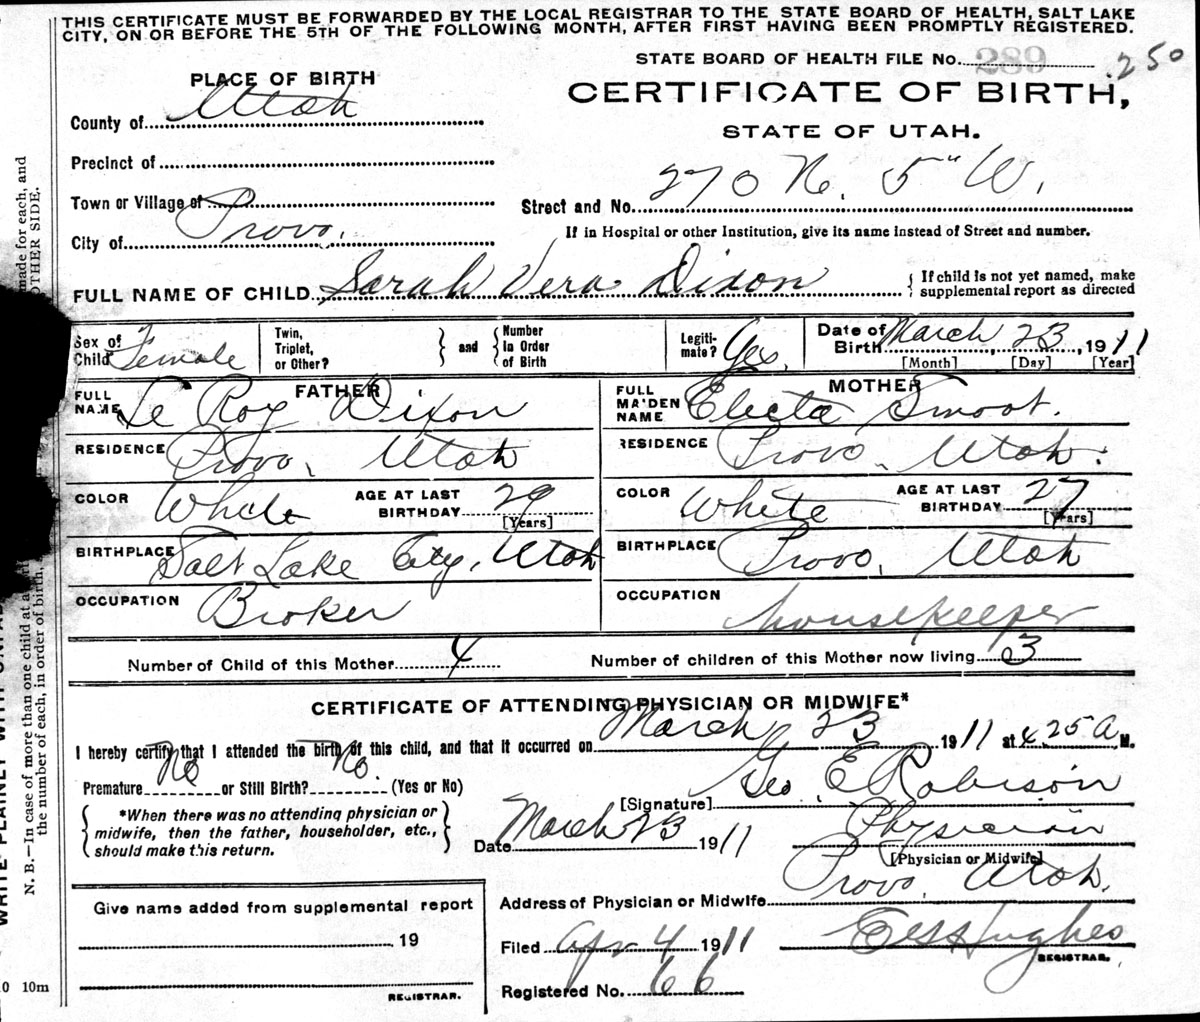 THIS CERTIFICATE MUST BE FORWARDED BY THE LOCAL REGISTRAR TO THE STATE BOARD OF HEALTH, SALT LAKE
CITY, ON OR BEFORE THE 5TH OF THE FOLLOWING MONTH, AFTER FIRST HAVING BEEN PROMPTLY REGISTERED.
STATE BOARD OF HEALTH FILE No. 289 250
PLACE OF BIRTH
CERTIFICATE OF BIRTH,
STATE OF UTAH.
County of Utah
Precinct of
Town or Village of
Street and No. 270 N. 5" W.
City of Provo.
If in Hospital or other Institution, give its name instead of Street and number.
FULL NAME OF CHILD Sarah Vera Dixon
{ If child is not yet named, make
supplemental report as directed
Sex of Child Female
Twin, Triplet, or Other? } and { Number in Order of Birth
Legitimate? Yes.
Date of Birth March 23, 1911
[Month] [Day] [Year]
FATHER
FULL NAME Le Roy Dixon
MOTHER
FULL MAIDEN NAME Electa Smoot.
RESIDENCE Provo, Utah
RESIDENCE Provo, Utah.
COLOR White AGE AT LAST BIRTHDAY 29 [Years]
COLOR White AGE AT LAST BIRTHDAY 27 [Years]
BIRTHPLACE Salt Lake City, Utah
BIRTHPLACE Provo, Utah
OCCUPATION Broker
OCCUPATION housekeeper
Number of Child of this Mother 4
Number of children of this Mother now living 3
CERTIFICATE OF ATTENDING PHYSICIAN OR MIDWIFE*
I hereby certify that I attended the birth of this child, and that it occurred on March 23 1911 at 4.25 A M.
Premature No or Still Birth? No. (Yes or No)
{ *When there was no attending physician or
midwife, then the father, householder, etc.,
should make this return. }
[Signature] Geo. E Robison
Date March 23 1911
Physician
[Physician or Midwife]
Address of Physician or Midwife Provo, Utah.
Give name added from supplemental report
19
REGISTRAR.
Filed Apr 4 1911
Hughes
REGISTRAR.
Registered No. 66
WRITE PLAINLY WITH
N. B.—In case of more than one child at a
made for each, and
the number of each, in order of birth.
OTHER SIDE.
10m